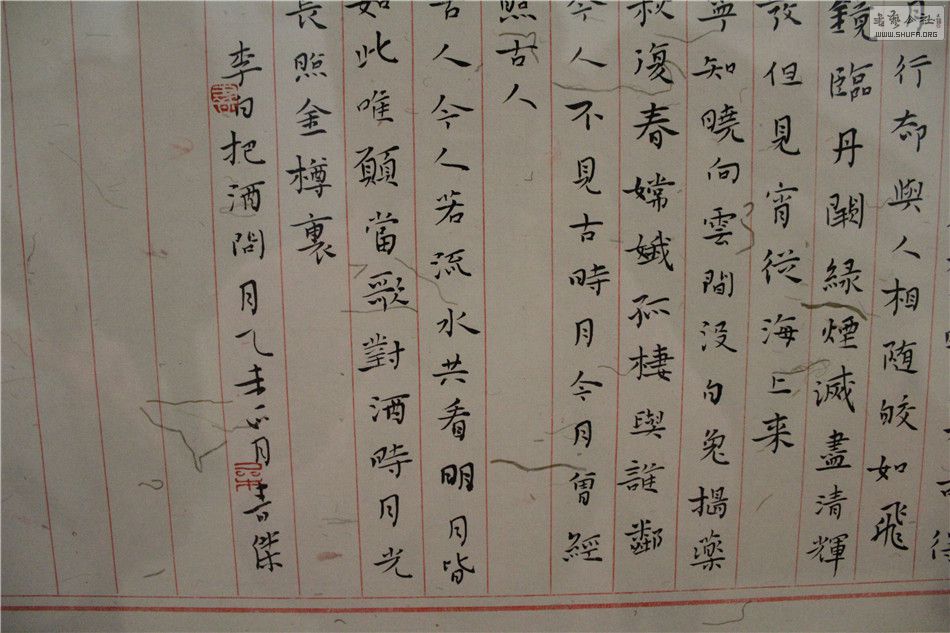 得
月行却與人相随皎如飛
鏡臨丹闕緑煙滅盡清輝
發但見宵從海上来
寧知曉向雲間没白兔搗藥
秋復春嫦娥孤棲與誰鄰
今人不見古時月今月曾經
照古人
古人今人若流水共看明月皆
如此唯願當歌對酒時月光
長照金樽裏
李白把酒問月乙未正月傑
書藝公社
WWW.SHUFA.ORG